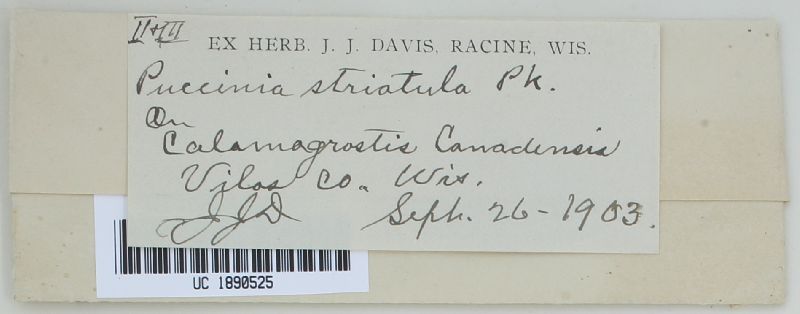 II+III
EX HERB. J. J. DAVIS, RACINE, WIS.
Puccinia striatula Pk.
On
Calamogrostis Canadensis
Vilas Co. Wis.
JJD Seph. 26-1903.
UC 1890525